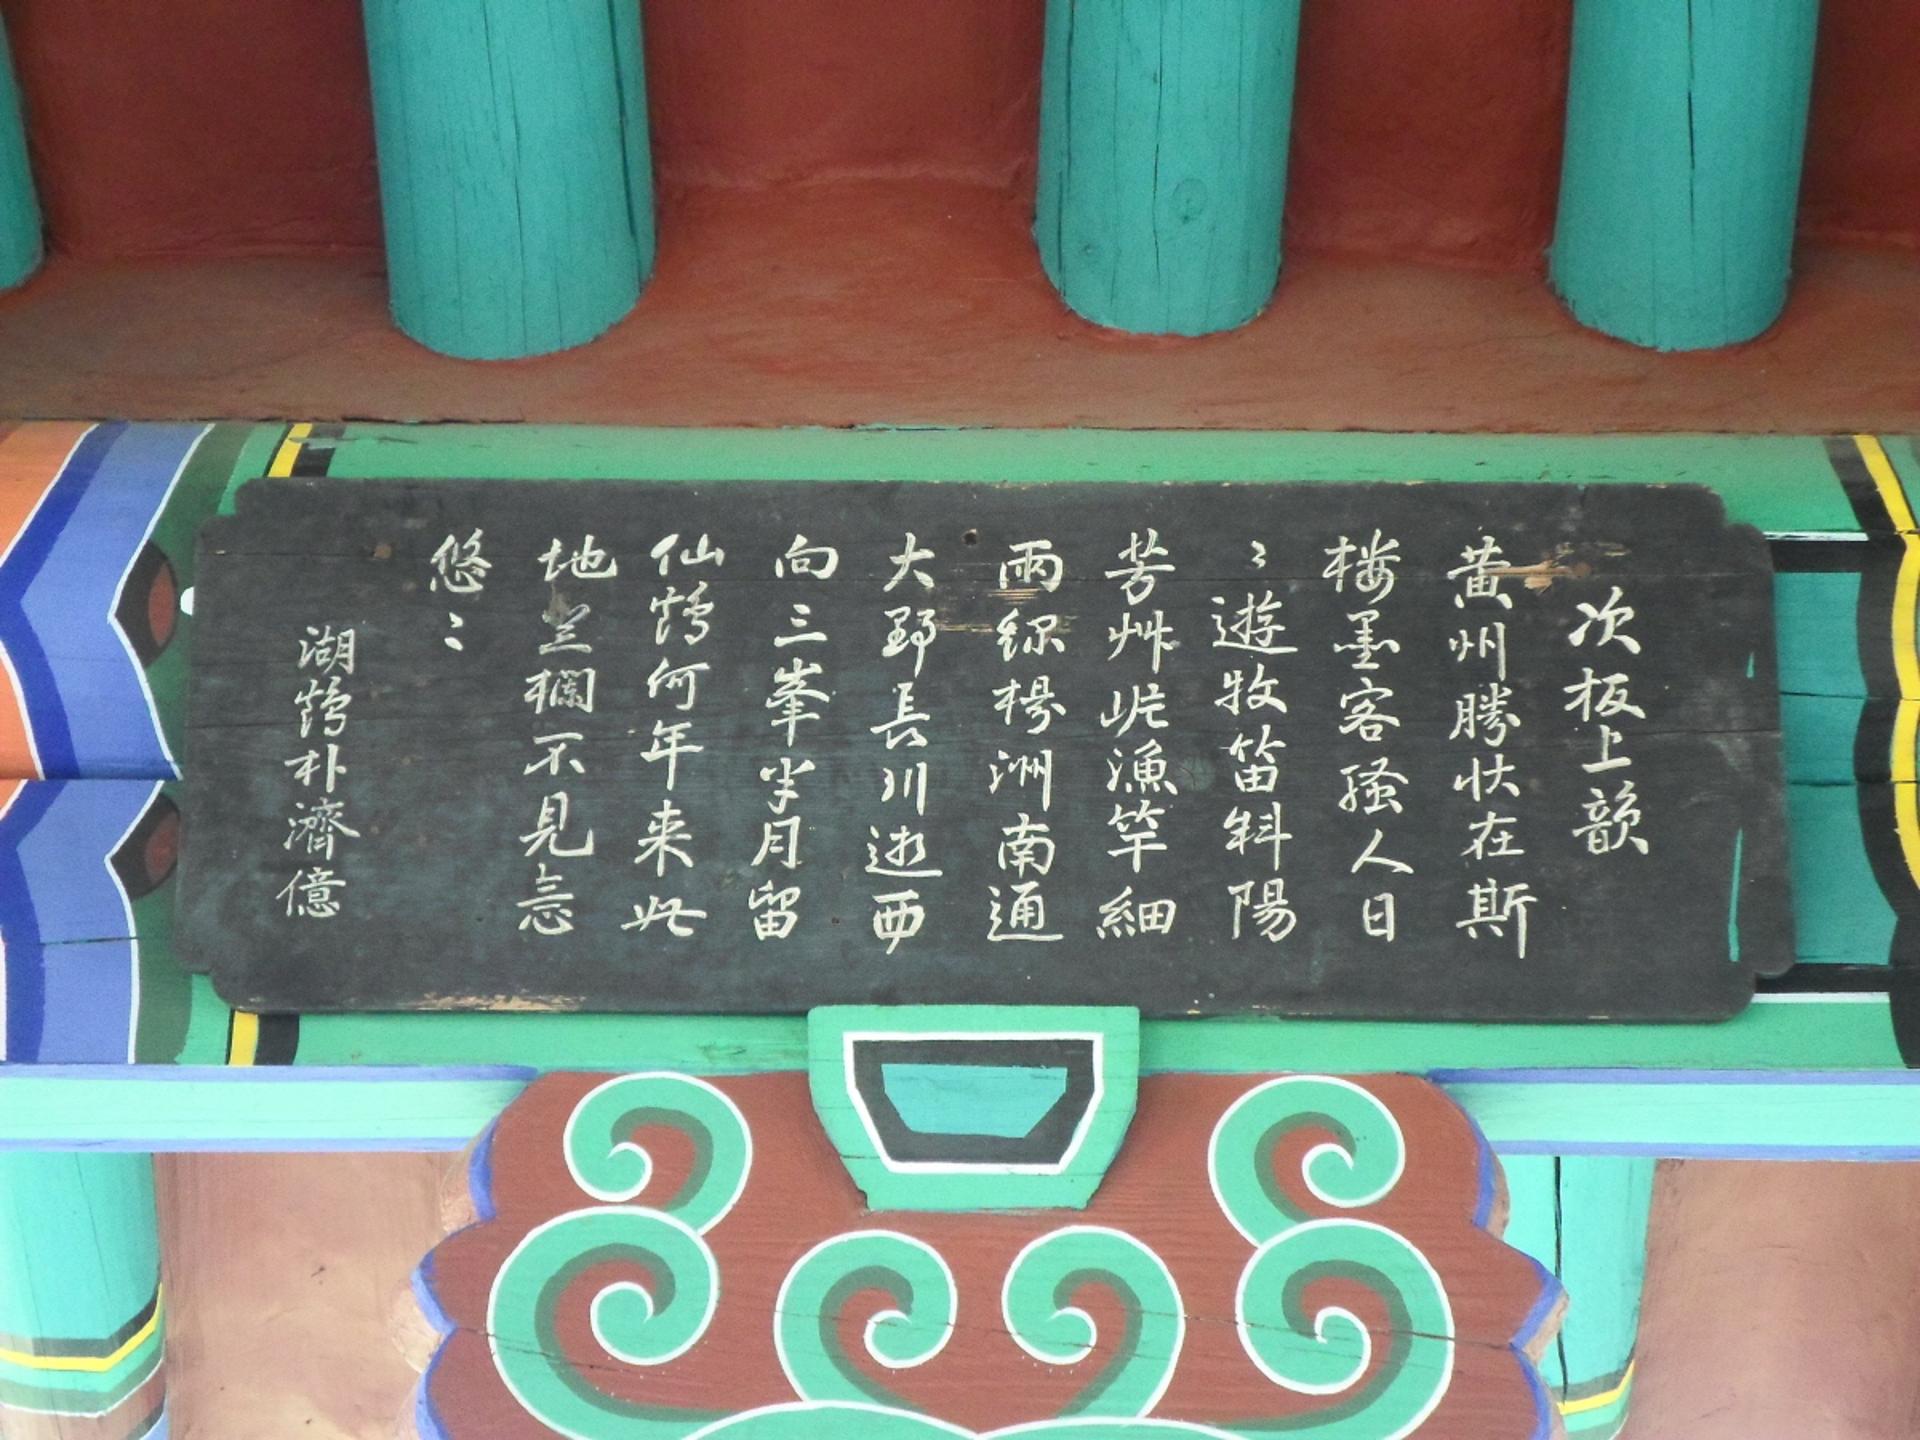 次板上韻
黃州勝状在斯
楼墨客騷人日
〻遊牧笛斜陽
芳艸岸漁竿細
雨綠楊洲南通
大野長川逝西
向三峯半月留
仙鶴何年来此
地兰欄不見意
悠〻
湖鶴朴濟億